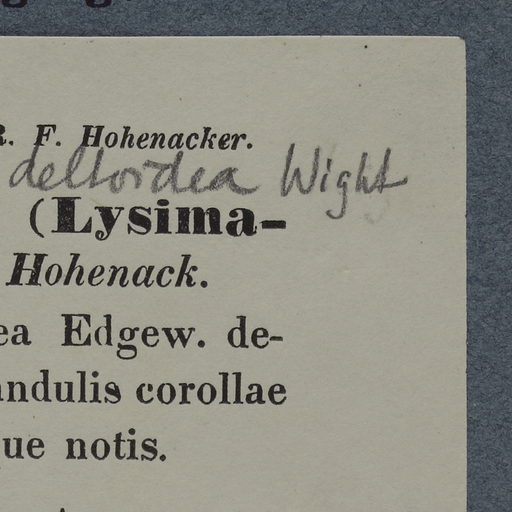 R. F. Hohenacker.
deltoidea Wight
(Lysima-
Hohenack.
ea Edgew. de-
andulis corollae
que notis.